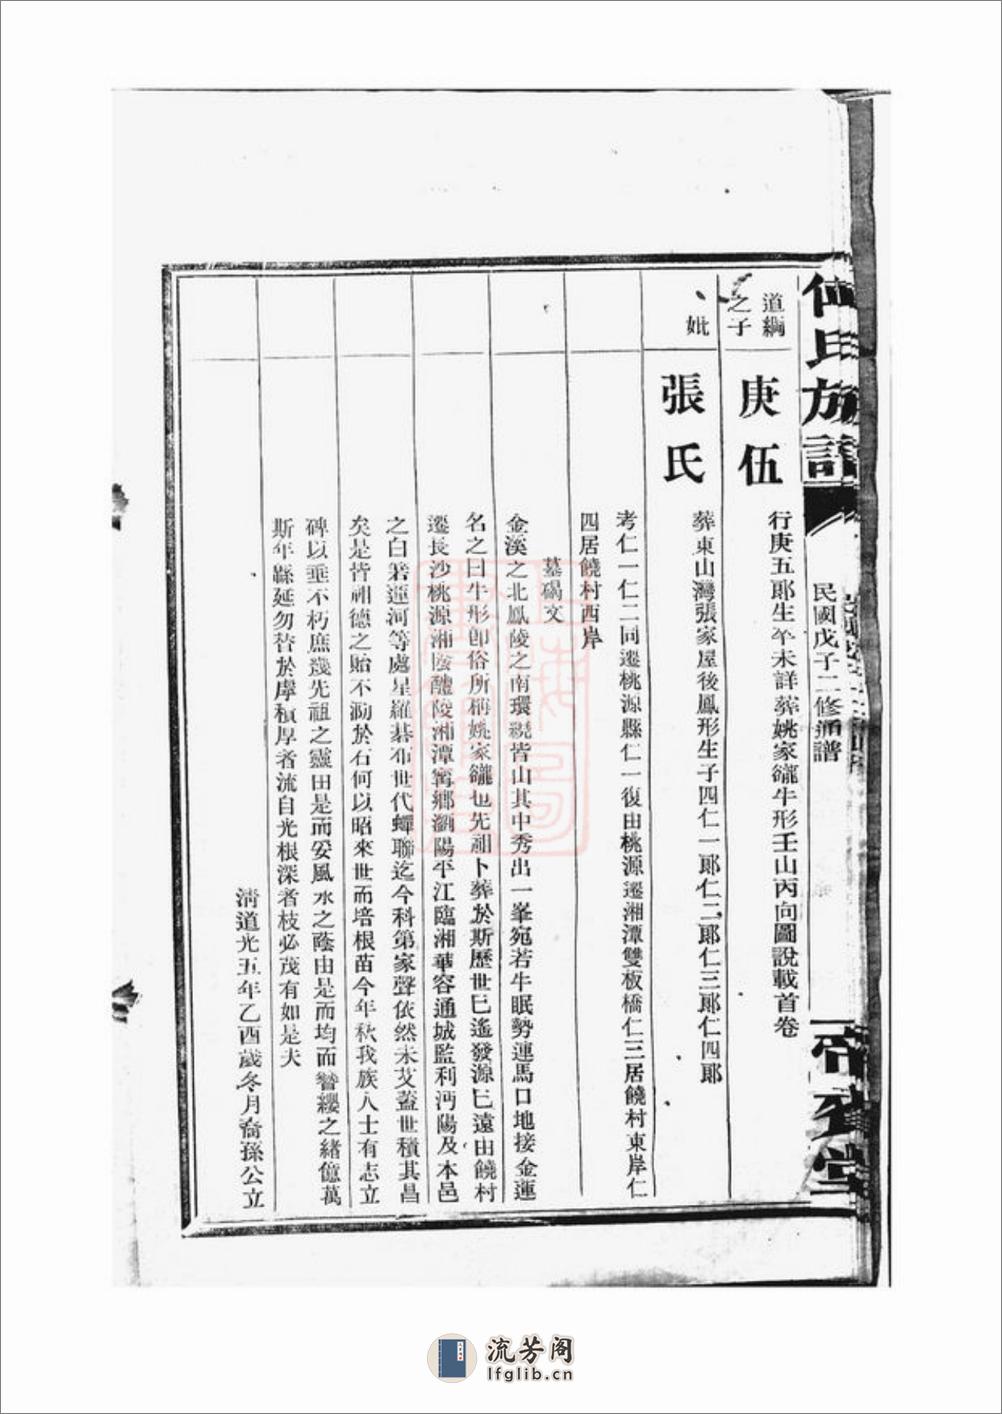 何氏族譜
民國戊子二修通譜
道綱
之子
庚伍
行庚五郎生卒未詳葬姚家巃牛形壬山丙向圖說載首卷
妣
張氏
葬東山灣張家屋後鳳形生子四仁一郎仁二郎仁三郎仁四郎
考仁一仁二同遷桃源縣仁一復由桃源遷湘潭雙板橋仁三居饒村東岸仁
四居饒村西岸
墓碣文
金溪之北鳳陵之南環繞皆山其中秀出一峯宛若牛眠勢連馬口地接金蓮
名之曰牛形卽俗所稱姚家巃也先祖卜葬於斯歷世已遙發源已遠由饒村
遷長沙桃源湘陰醴陵湘潭寗鄉瀏陽平江臨湘華容通城監利沔陽及本邑
之白箬運河等處星羅碁布世代蟬聯迄今科第家聲依然未艾蓋世積其昌
矣是皆祖德之貽不泐於石何以昭來世而培根苗今年秋我族人士有志立
碑以垂不朽庶幾先祖之靈由是而妥風水之蔭由是而均而簪纓之緒億萬
斯年緜延勿替於虖積厚者流自光根深者枝必茂有如是夫
淸道光五年乙酉歲冬月裔孫公立
流芳阁
lfglib.cn